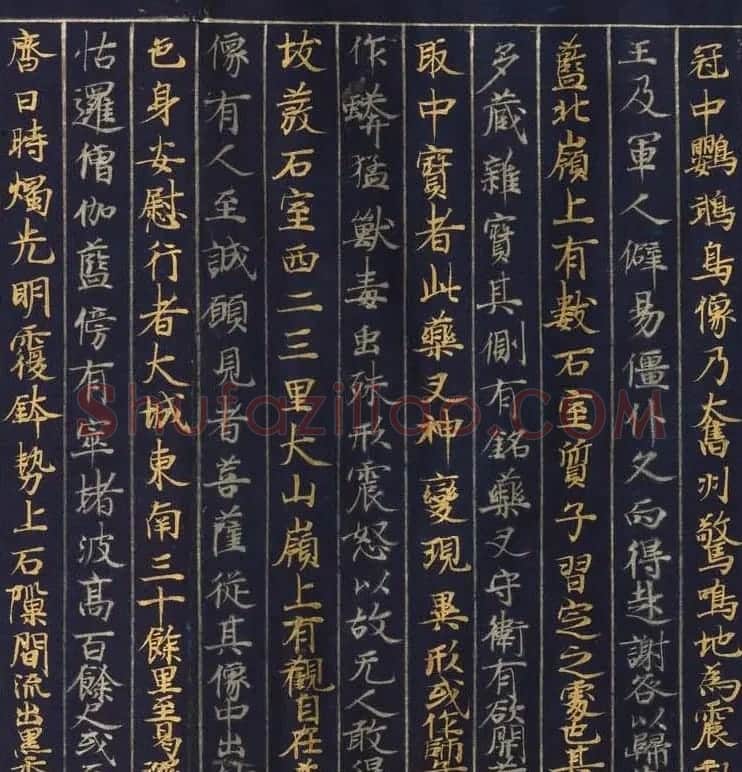 冠中鸚鵡鳥像乃奮羽驚鳴地為震動
王及軍人僻易僵仆久而得起謝咎以歸
藍北嶺上有數石室質子習定之處也其
多藏雜寶其側有銘藥叉守衛有欲開
取中寶者此藥叉神變現異形或作師
作蟒猛獸毒虫殊形震怒以故无人敢得
故義石室西二三里大山嶺上有觀自在
像有人至誠願見者菩薩從其像中出
色身安慰行者大城東南三十餘里至曷
怙邏僧伽藍傍有窣堵波高百餘尺或
齋日時燭光明覆鉢勢上石隙間流出黑香
Shufaziliao.COM